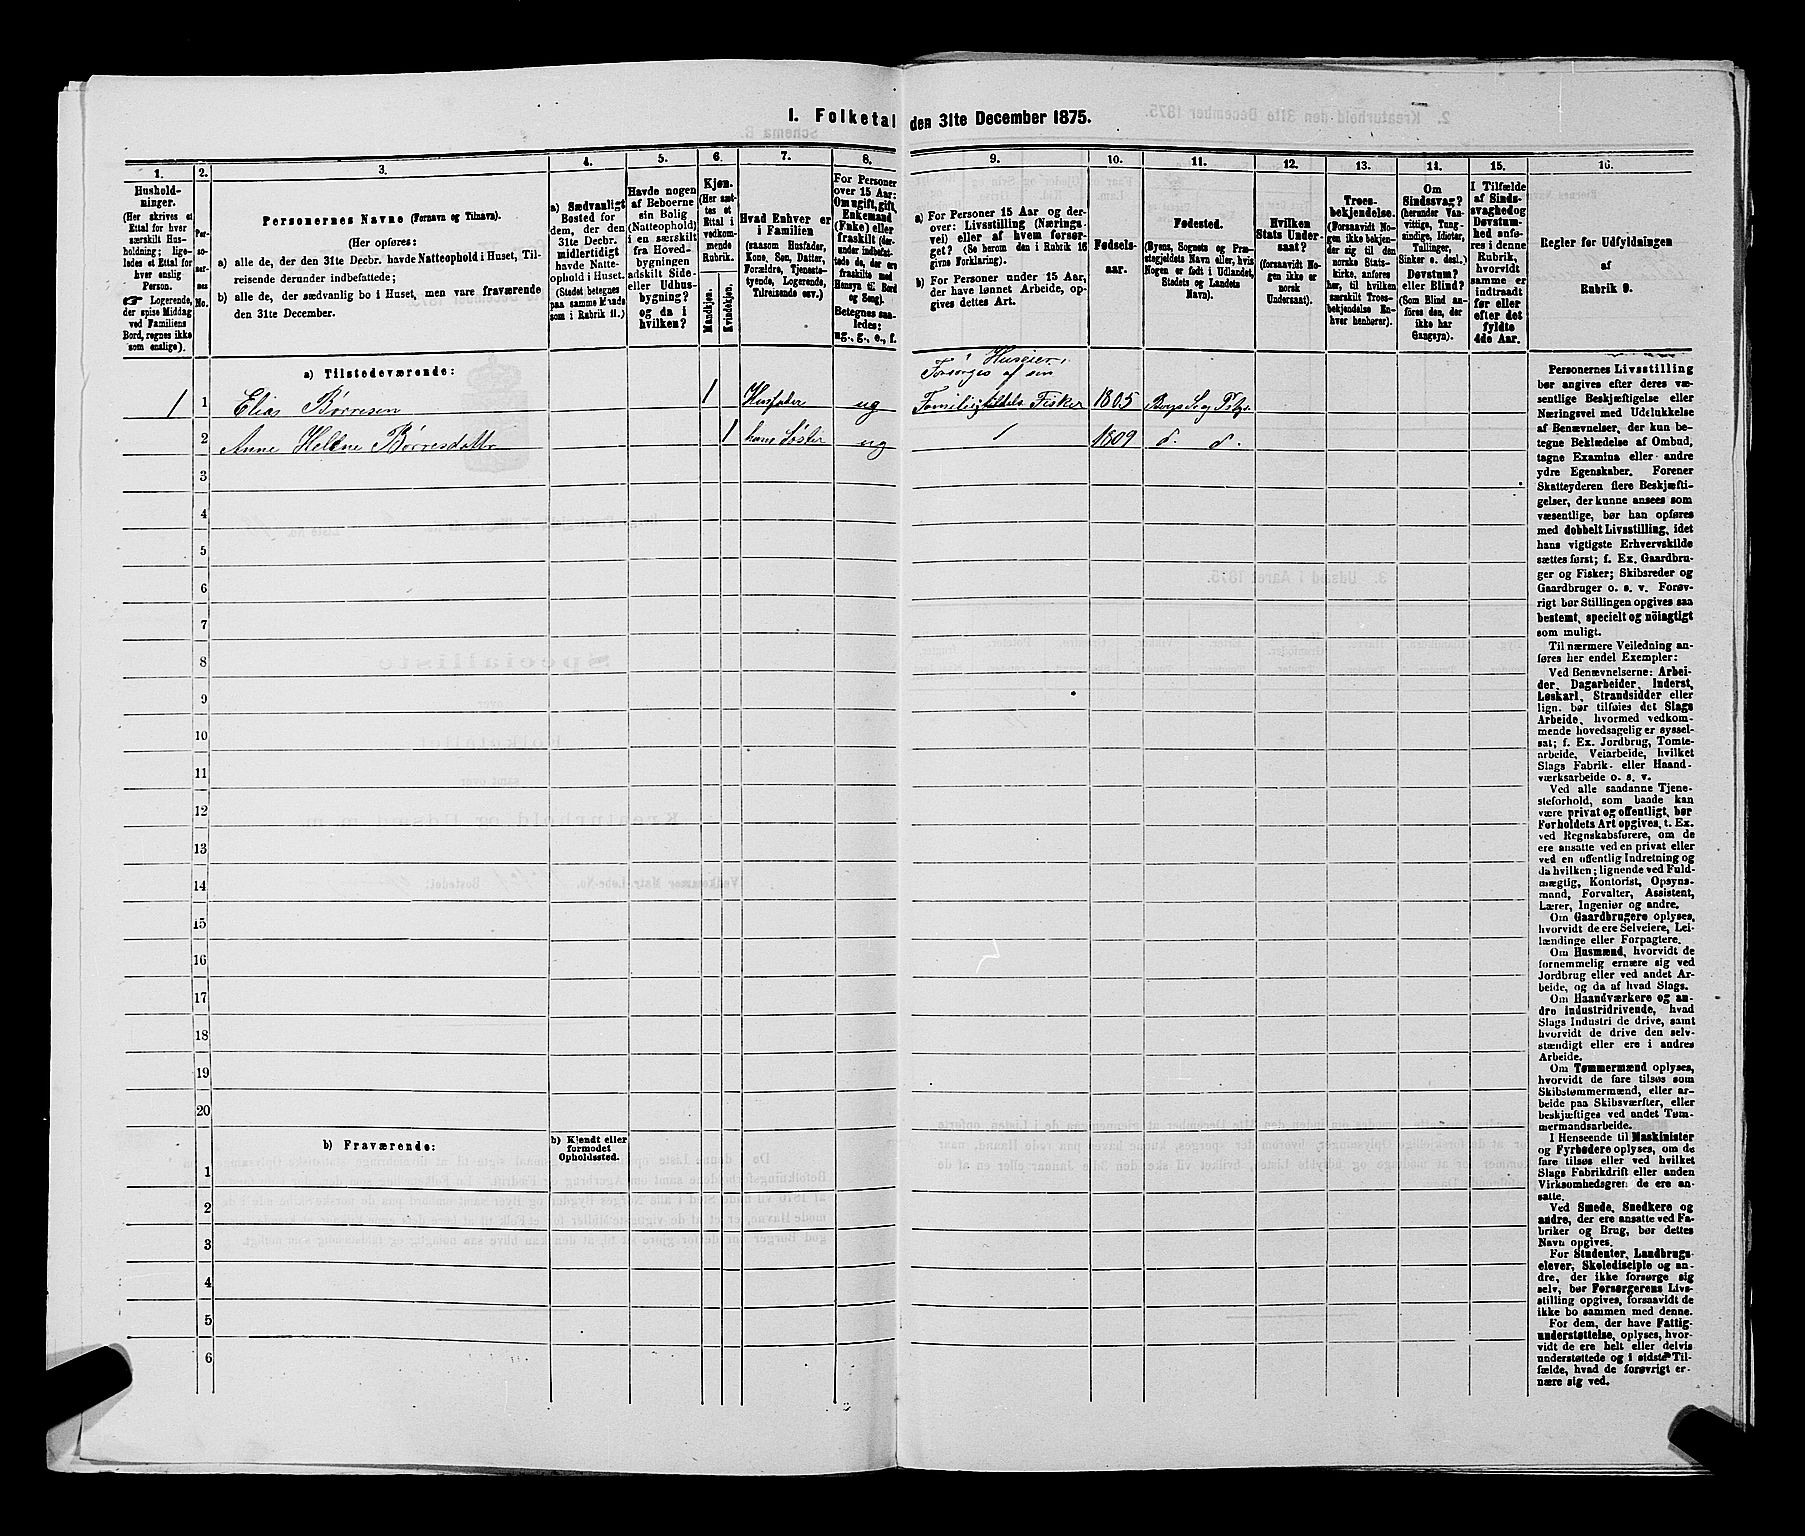 I. Folketal den 31te December 1875.
1.
Hushold-
ninger.
(Her skrives et
Ettal for hver
særskilt Hus-
holdning; lige-
ledes et Ettal for
hver enslig
Person.
☞ Logerende,
der spise Middag
ved Familiens
Bord, regnes ikke
som enslige).
2.
Per-
so-
ner-
nes
No.
3.
Personernes Navne (Fornavn og Tilnavn).
(Her opføres:
a) alle de, der den 31te Decbr. havde Natteophold i Huset, Til-
reisende derunder indbefattede;
b) alle de, der sædvanlig bo i Huset, men vare fraværende
den 31te December.
4.
a) Sædvanligt
Bosted for
dem, der den
31te Decbr.
midlertidigt
havde Natte-
ophold i Huset.
(Stedet betegnes
paa samme Maade
som i Rubrik 11.)
5.
Havde nogen
af Beboerne
sin Bolig
(Natteophold)
i en særskilt
fra Hoved-
bygningen
adskilt Side-
eller Udhus-
bygning?
og da i
hvilken?
6.
Kjøn.
(Her sæt-
tes et
Ettal i
vedkom-
mende
Rubrik.
Mandkjøn.
Kvindekjøn.
7.
Hvad Enhver er
i Familien
(saasom Husfader,
Kone, Søn, Datter,
Forældre, Tjeneste-
tyende, Logerende,
Tilreisende osv.)
8.
For Personer
over 15 Aar:
Om ugift, gift,
Enkemand
(Enke) eller
fraskilt (der-
under indbefat-
tede de, der ere
fraskilte med
Hensyn til Bord
og Seng).
Betegnes saa-
ledes:
ug., g., e., f.
9.
a) For Personer 15 Aar og der-
over: Livsstilling (Nærings-
vei) eller af hvem forsør-
get? (Se herom den i Rubrik 16
givne Forklaring).
b) For Personer under 15 Aar,
der have lønnet Arbeide, op-
gives dettes Art.
10.
Fødsels-
aar.
11.
Fødested.
(Byens, Sognets og Præ-
stegjeldets Navn eller, hvis
Nogen er født i Udlandet,
Stedets og Landets
Navn).
12.
Hvilken
Stats Under-
saat?
(forsaavidt No-
gen ikke er
norsk
Undersaat).
13.
Troes-
bekjendelse.
(Forsaavidt No-
gen ikke bekjen-
der sig til den
norske Stats-
kirke, anføres
her, til hvilken
særskilt Troes-
bekjendelse En-
hver henhører).
14.
Om
Sindssvag?
(herunder Van-
vittige, Tung-
sindige, Idioter,
Tullinger,
Sinker o. desl.)
Døvstum?
eller Blind?
(Som Blind an-
føres den, der
ikke har
Gangsyn).
15.
I Tilfælde
af Sinds-
svaghed og
Døvstum-
hed anfø-
res i denne
Rubrik,
hvorvidt
samme er
indtraadt
før eller
efter det
fyldte
4de Aar.
16.
Regler for Udfyldningen
af
Rubrik 9.
a) Tilstedeværende:
Huseier,
Forsørges af sin
1 1 Elias Børresen 1 Husfader ug Familie, tildels Fisker 1805
2 Anne Helene Børresdatter 1 hans Søster ug / 1809 d. d.
3
4
5
6
7
8
9
10
11
12
13
14
15
16
17
18
19
20
b) Fraværende:
b) Kjendt eller
formodet
Opholdssted.
1
2
3
4
5
6
Personernes Livsstilling
bør angives efter deres væ-
sentlige Beskjæftigelse eller
Næringsvei med Udelukkelse
af Benævnelser, der kun be-
tegne Beklædelse af Ombud,
tagne Examina eller andre
ydre Egenskaber. Forener
Skatteyderen flere Beskjæfti-
gelser, der kunne ansees som
væsentlige, bør han opføres
med dobbelt Livsstilling, idet
hans vigtigste Erhvervskilde
sættes først; f. Ex. Gaardbru-
ger og Fisker; Skibsreder og
Gaardbruger o. s. v. Forøv-
rigt bør Stillingen opgives saa
bestemt, specielt og nöiagtigt
som muligt.
Til nærmere Veiledning an-
føres her endel Exempler:
Ved Benævnelserne: Arbei-
der, Dagarbeider, Inderst,
Løskarl, Strandsidder eller
lign. bør tilføies det Slags
Arbeide, hvormed vedkom-
mende hovedsagelig er syssel-
sat; f. Ex. Jordbrug, Tomte-
arbeide, Veiarbeide, hvilket
Slags Fabrik- eller Haand-
værksarbeide o. s. v.
Ved alle saadanne Tjene-
steforhold, som baade kan
være privat og offentligt, bør
Forholdets Art opgives, t. Ex.
ved Regnskabsførere, om de
ere ansatte ved en privat eller
ved en offentlig Indretning og
da hvilken; lignende ved Fuld-
mægtig, Kontorist, Opsyns-
mand, Forvalter, Assistent,
Lærer, Ingeniør og andre.
Om Gaardbrugere oplyses,
hvorvidt de ere Selveiere, Lei-
lændinge eller Forpagtere.
Om Husmænd, hvorvidt de
fornemmelig ernære sig ved
Jordbrug eller ved andet Ar-
beide, og da af hvad Slags.
Om Haandværkere og an-
dre industridrivende, hvad
Slags Industri de drive, samt
hvorvidt de drive den selv-
stændigt eller ere i andres
Arbeide.
Om Tømmermænd oplyses,
hvorvidt de fare tilsøs som
Skibstømmermænd, eller ar-
beide paa Skibsværfter, eller
beskjæftiges ved andet Tøm-
mermandsarbeide.
I Henseende til Maskinister
og Fyrbødere oplyses, om de
fare tilsøs eller ved hvilket
Slags Fabrikdrift eller anden
Virksomhedsgren de ere an-
satte.
Ved Smede, Snedkere og
andre, der ere ansatte ved Fa-
briker og Brug, bør dettes
Navn opgives.
For Studenter, Landbrugs-
elever, Skoledisciple og an-
dre, der ikke forsørge sig
selv, bør Forsørgerens Livs-
stilling opgives, forsaavidt de
ikke bo sammen med denne.
For dem, der have Fattig-
understøttelse, oplyses, hvor-
vidt de ere helt eller delvis
understøttede og i sidste Til-
fælde, hvad de forøvrigt er-
nære sig ved.